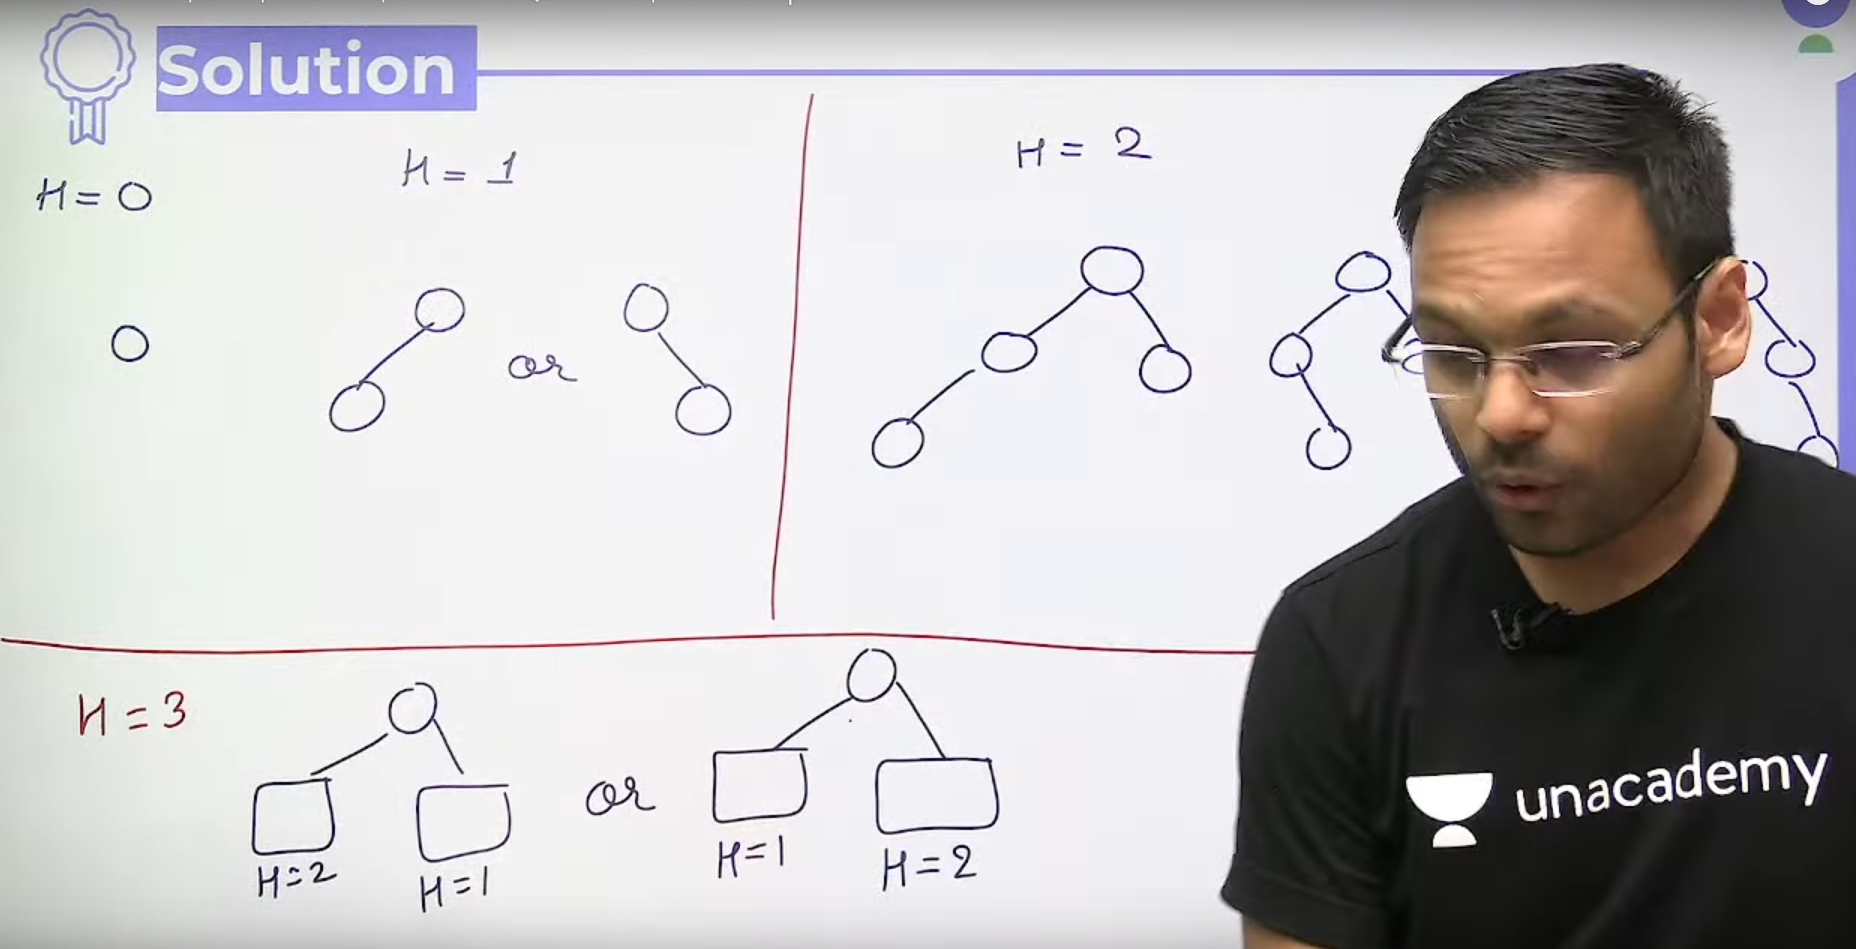 Solution
H = 0
H = 1
H = 2
or
H = 3
or
H=2
H=1
H=1
H=2
unacademy